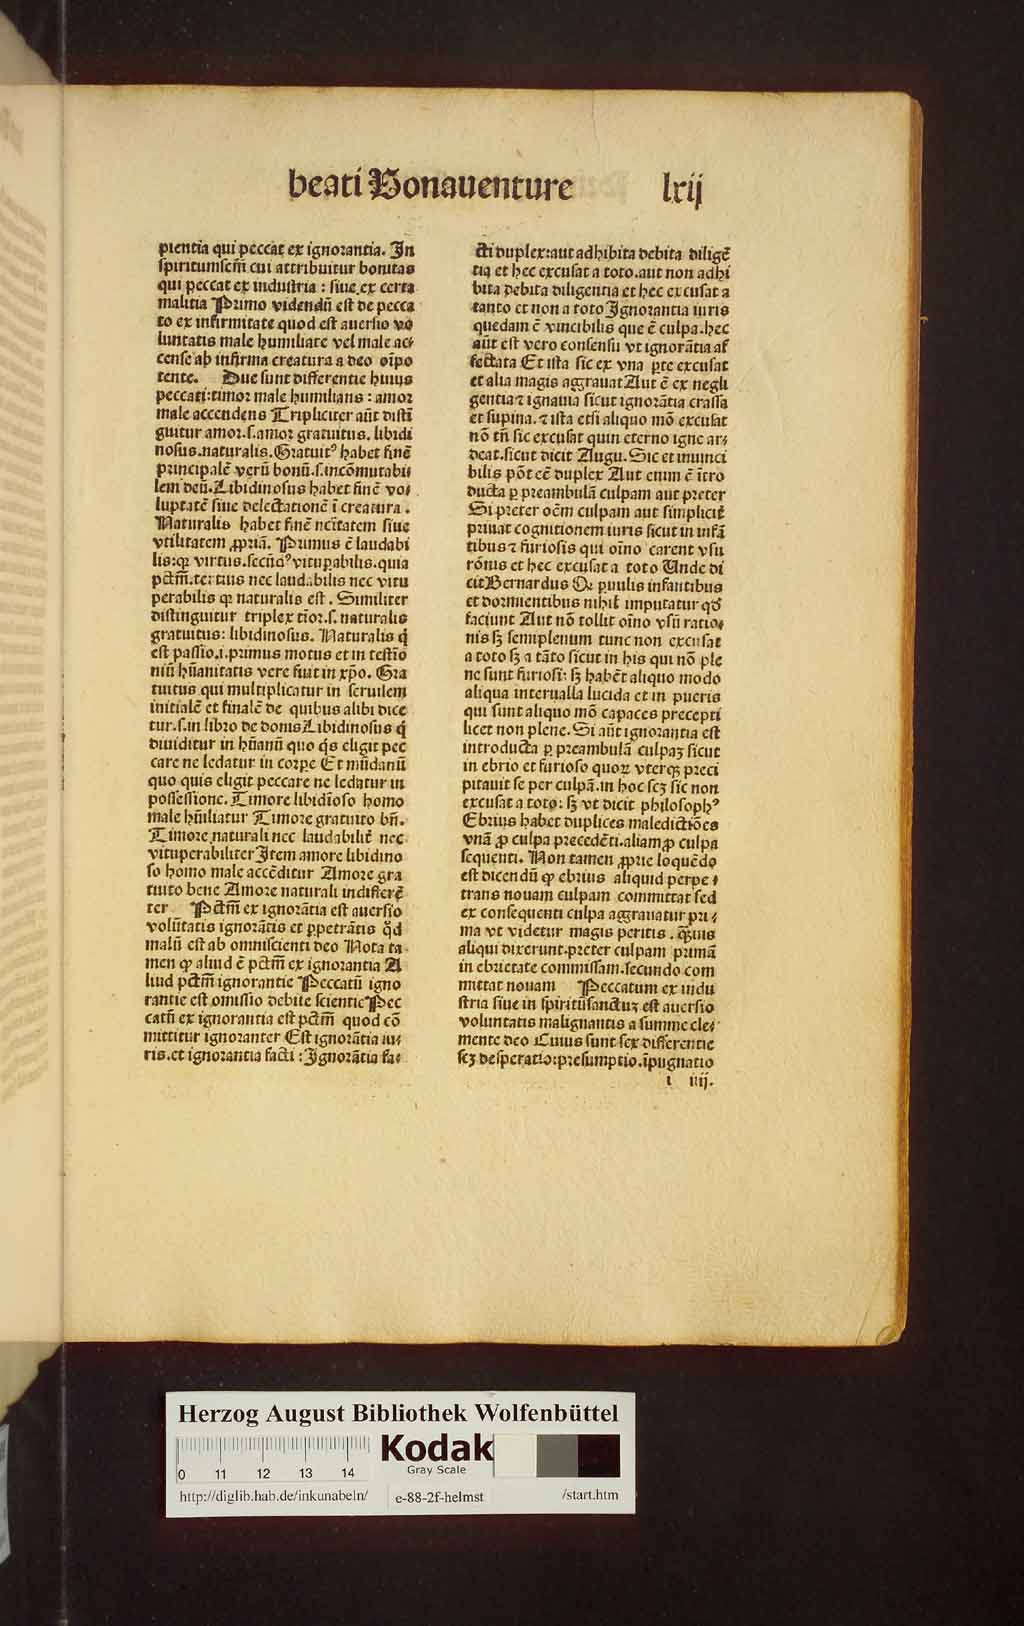 beati Bonauenture lxij
pientia qui peccat ex ignorantia. In
spiritumsem̄ cui attribuitur bonitas
qui peccat ex industria : siue ex certa
malitia Primo videndū est de pecca
to ex infirmitate quod est auersio vo
luntatis male humiliate vel male ac⸗
cense ab infirma creatura a deo oīpo
tente. Due sunt differentie huius
peccati:timor male humilians : amor
male accendens Tripliciter aūt distī
guitur amor.s.amor gratuitus. libidi
nosus.naturalis.Gratuitꝰ habet finē
principalē verū bonū.s.incōmutabi⸗
lem deū.Libidinosus habet finē vo⸗
luptatē siue delectationē ī creatura.
Naturalis habet finē ncītatem siue
vtilitatem ꝓpriā. Primus ē laudabi
lis:qꝛ virtus.secūdꝰ vituꝑabilis.quia
pctm̄.tertius nec laudabilis nec vitu
perabilis qꝛ naturalis est. Similiter
distinguitur triplex tīor.s. naturalis
gratuitus: libidinosus. Naturalis q̄
est passio.i.primus motus et in testīo
niū hūanitatis vere fuit in xp̄o. Gra
tuitus qui multiplicatur in seruilem
initialē et finalē de quibus alibi dice
tur.s.in libro de donis Libidinosus q̄
diuiditur in hūanū quo q̄s eligit pec
care ne ledatur in corpꝛe Et mūdanū
quo quis eligit peccare ne ledatur in
possessione. Timore libidīoso homo
male hūiliatur Timore gratuito bn̄.
Timore naturali nec laudabilit̄ nec
vituperabiliter Item amore libidino
so homo male accēditur Amore gra
tuito bene Amore naturali indifferē
ter Pctm̄ ex ignorātia est auersio
volūtatis ignorātis et ꝑpetrātis qd̄
malū est ab omniscienti deo Nota ta
men qꝙ aliud ē pctm̄ ex ignorantia A
liud pctm̄ ignorantie Peccatū igno
rantie est omissio debite scientie Pec
catū ex ignorantia est pctm̄ quod cō
mittitur ignoranter Est ignorātia iu⸗
ris.et ignorantia facti : Ignorātia fa⸗
cti duplex:aut adhibita debita diligē
tia et hec excusat a toto.aut non adhi
bita debita diligentia et hec excusat a
tanto et non a toto Ignorantia iuris
quedam ē vincibilis que ē culpa.hec
aūt est vero consensu vt ignorātia af
fectata Et ista sic ex vna ꝑte excusat
et alia magis aggrauat Aut ē ex negli
gentia ⁊ ignauia sicut ignorātia crassa
et supina.⁊ ista etsi aliquo mō excusat
nō tn̄ sic excusat quin eterno igne ar⸗
deat.sicut dicit Augu. Sic et inuinci
bilis pōt eē duplex Aut enim ē ītro
ducta ꝑ preambulā culpam aut preter
Si preter oēm culpam aut simplicit̄
priuat cognitionem iuris sicut in infā
tibus ⁊ furiosis qui oīno carent vsu
rōnis et hec excusat a toto Unde di
cit Bernardus Qꝙ ꝑuulis infantibus
et dormientibus nihil imputatur qd̄
faciunt Aut nō tollit oīno vsū ratio⸗
nis sꝫ semiplenum tunc non excusat
a toto sꝫ a tāto sicut in his qui nō ple
ne sunt furiosi: sꝫ habēt aliquo modo
aliqua interualla lucida et in pueris
qui sunt aliquo mō capaces precepti
licet non plene. Si aūt ignorantia est
introducta ꝑ preambulā culpaꝫ sicut
in ebrio et furioso quoꝝ vterqꝫ preci
pitauit se per culpā.in hoc scꝫ sic non
excusat a toto: sꝫ vt dicit philosophꝰ
Ebrius habet duplices maledictiōes
vnā ꝓ culpa precedēti.aliam ꝓ culpa
sequenti. Non tamen ꝓprie loquēdo
est dicendū qꝙ ebrius aliquid perpe⸗
trans nouam culpam committat sed
ex consequenti culpa aggrauatur pri⸗
ma vt videtur magis peritis. qꝫuis
aliqui dixerunt.preter culpam primā
in ebrietate commissam.secundo com
mittat nouam Peccatum ex indu
stria siue in spiritūsanctuꝫ est auersio
voluntatis malignantis a summe cle⸗
mente deo Cuius sunt sex differentie
scꝫ desperatio:presumptio.īpugnatio
i iiij.
Herzog August Bibliothek Wolfenbüttel
0 11 12 13 14
Kodak
Gray Scale
http://diglib.hab.de/inkunabeln/ e-88-2f-helmst /start.htm